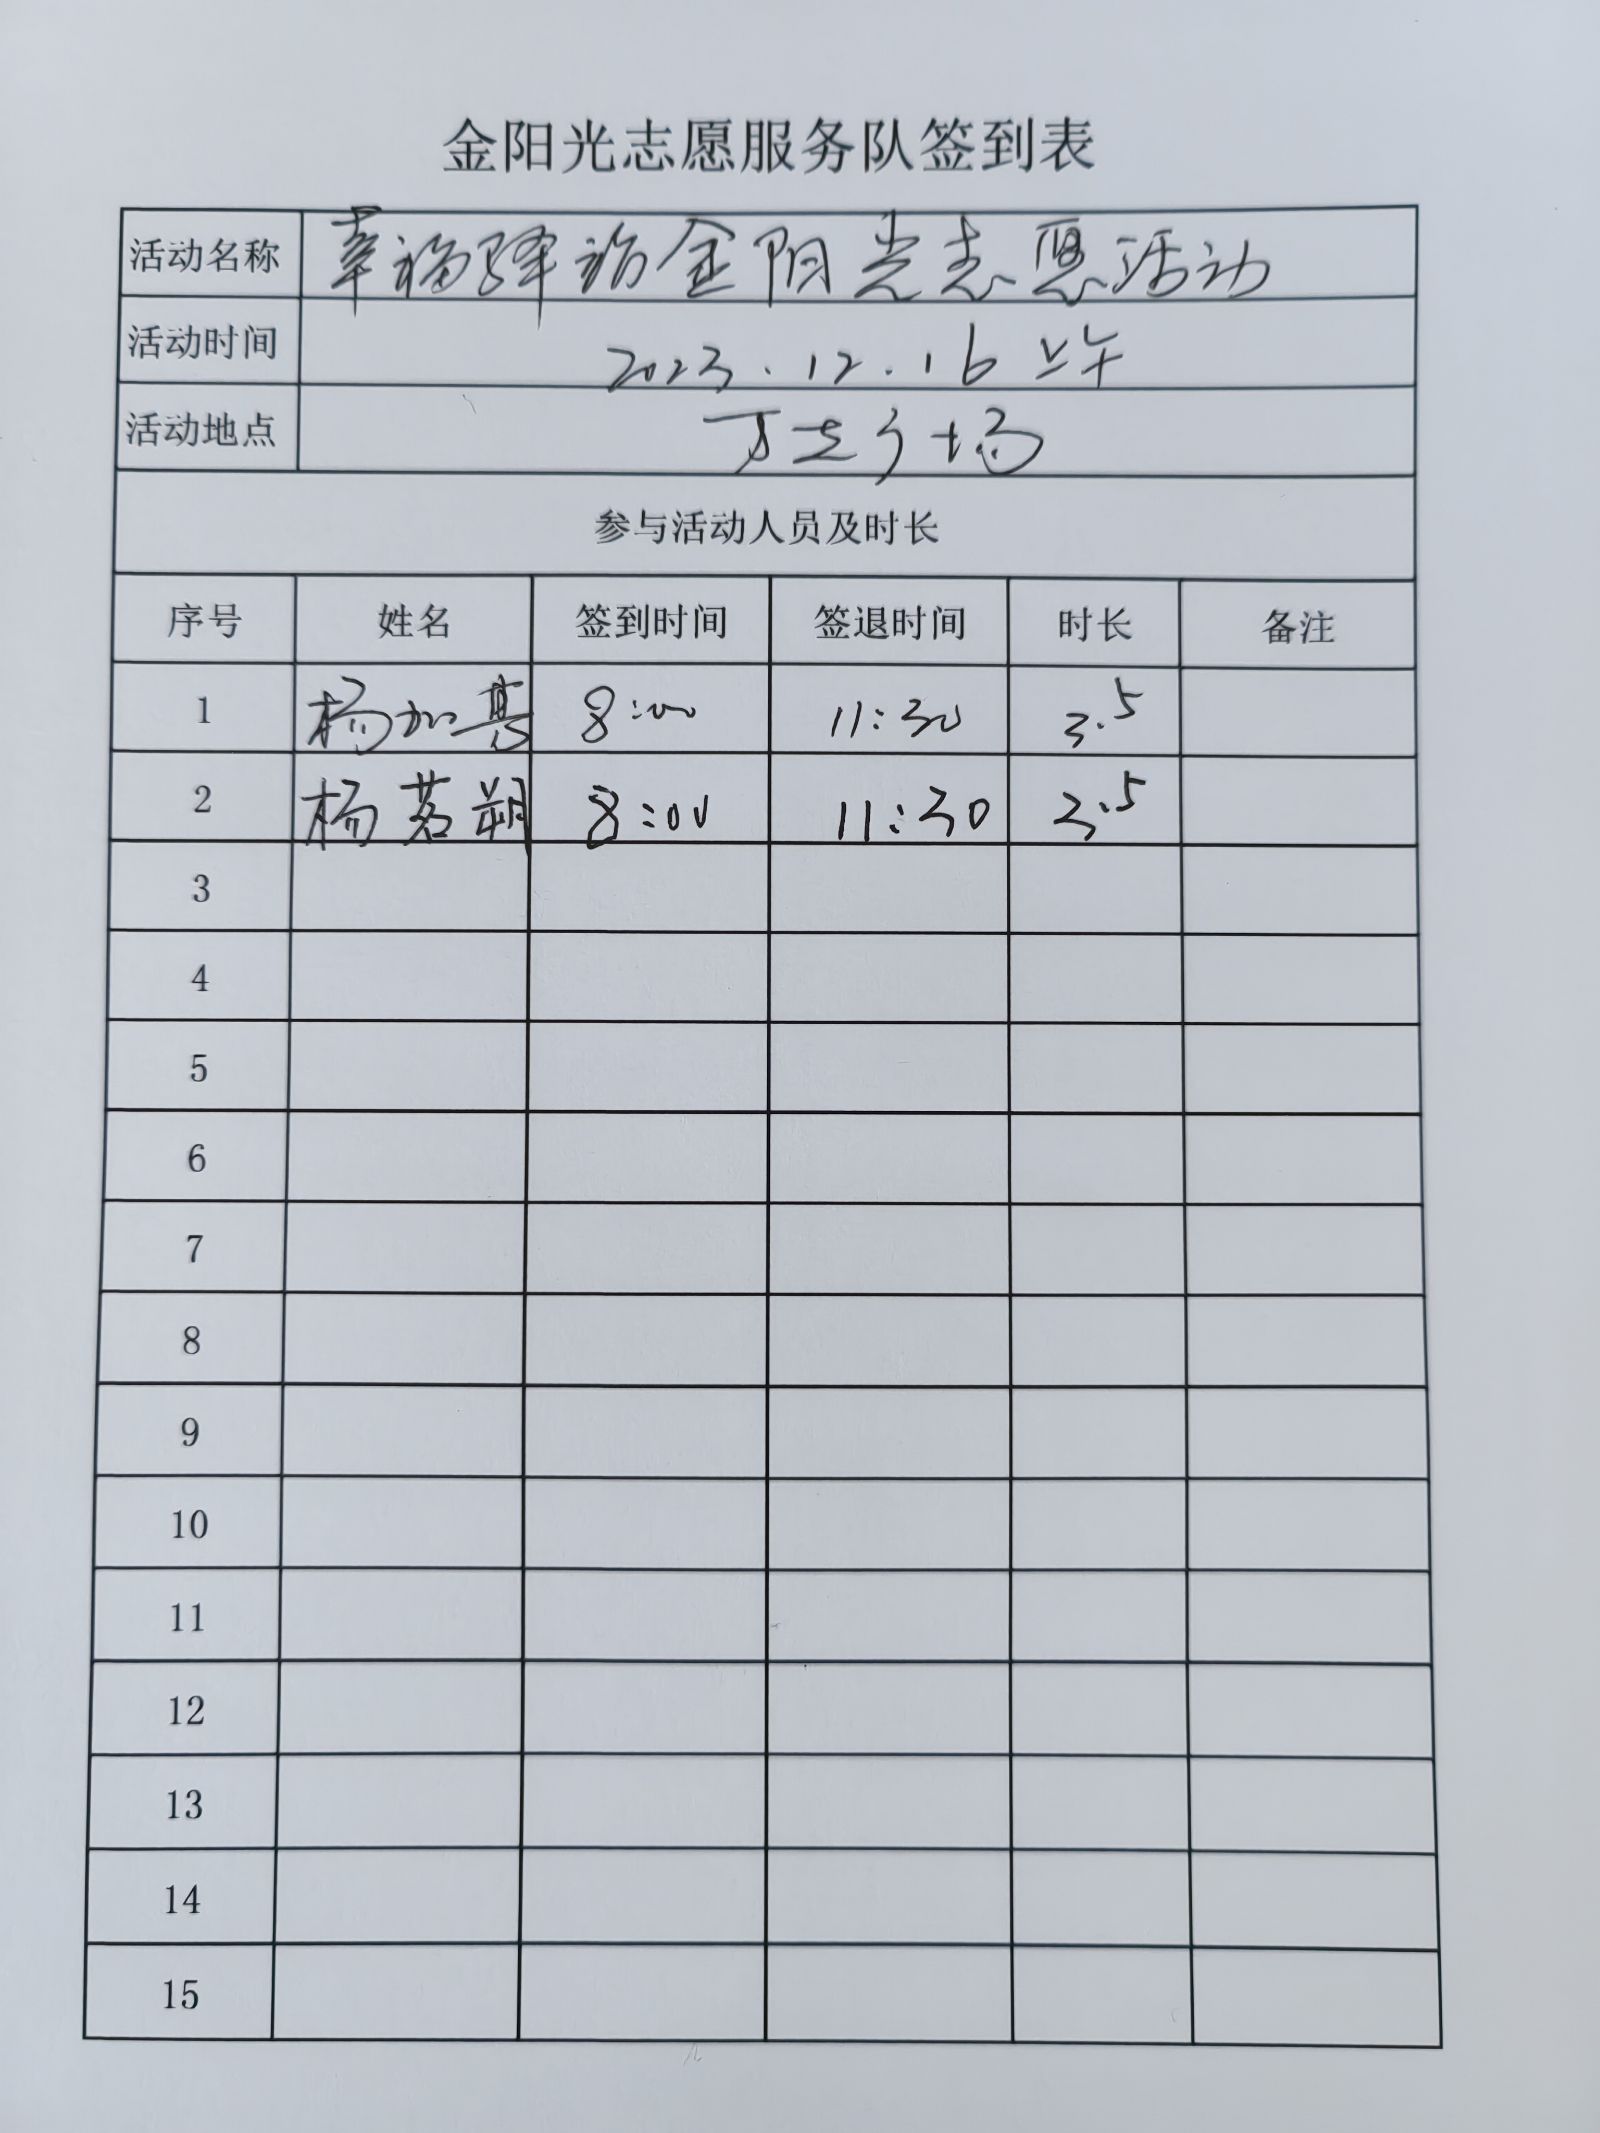 金阳光志愿服务队签到表
活动名称 幸福驿站金阳光志愿活动
活动时间 2023.12.16 上午
活动地点 万达广场
参与活动人员及时长
序号 姓名 签到时间 签退时间 时长 备注
1 杨加慧 8:00 11:30 3.5
2 杨茗朔 8:00 11:30 3.5
3
4
5
6
7
8
9
10
11
12
13
14
15